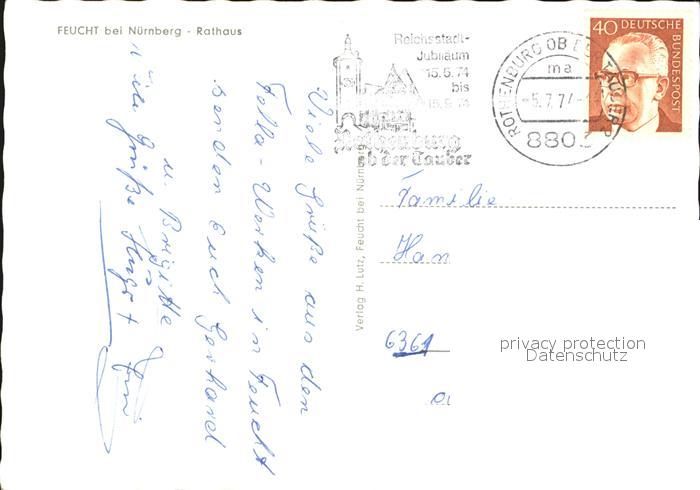 FEUCHT bei Nürnberg - Rathaus
Reichsstadt-
Jubiläum
15.5.74
bis
15.9.74
Rothenburg
ob der Tauber
ROTHENBURG OB DER TAUBER
ma
-5.7.7
8803
40 DEUTSCHE BUNDESPOST
Viele Grüße aus den
Tella-Werken in Feucht
senden Euch Gerhard
u. Brigitte
Viele Grüße
Verlag H. Lutz, Feucht bei Nürnberg
Familie
Han
6361
privacy protection
Datenschutz